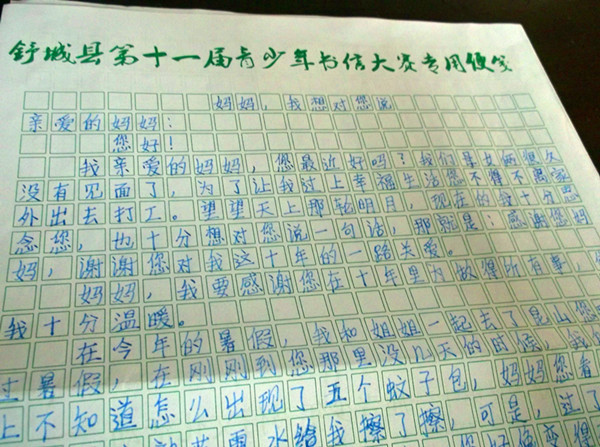 舒城县第十一届青少年书信大赛专用便笺
妈妈，我想对您说
亲爱的妈妈：
您好！
我亲爱的妈妈，您最近好吗？我们母女俩很久
没有见面了，为了让我过上幸福生活您不得不离家
外出去打工。望望天上那轮明月，现在的我十分思
念您，也十分想对您说一句话，那就是：感谢您妈
妈，谢谢您对我这十年的一路关爱。
妈妈，我要感谢您在十年里为我做得所有事，
我十分温暖。
在今年的暑假，我和姐姐一起去了昆山您
过暑假，在刚刚到您那里没几天的时候，我
上不知道怎么出现了五个蚊子包，妈妈您看
花露水给我擦了擦，可是，过了